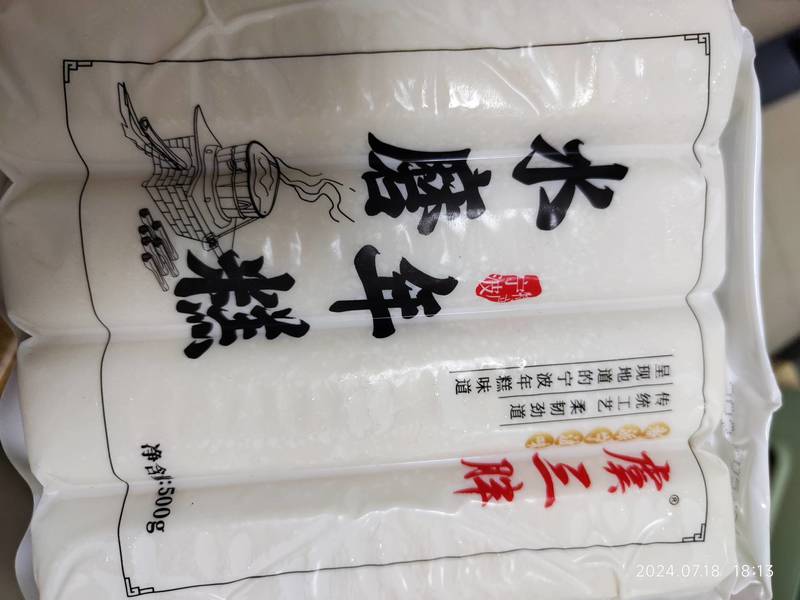 虞三胖®
传统工艺 柔韧劲道
呈现地道的宁波年糕味道
宁波
水磨
年糕
净含量:500g
2024.07.18 18:13